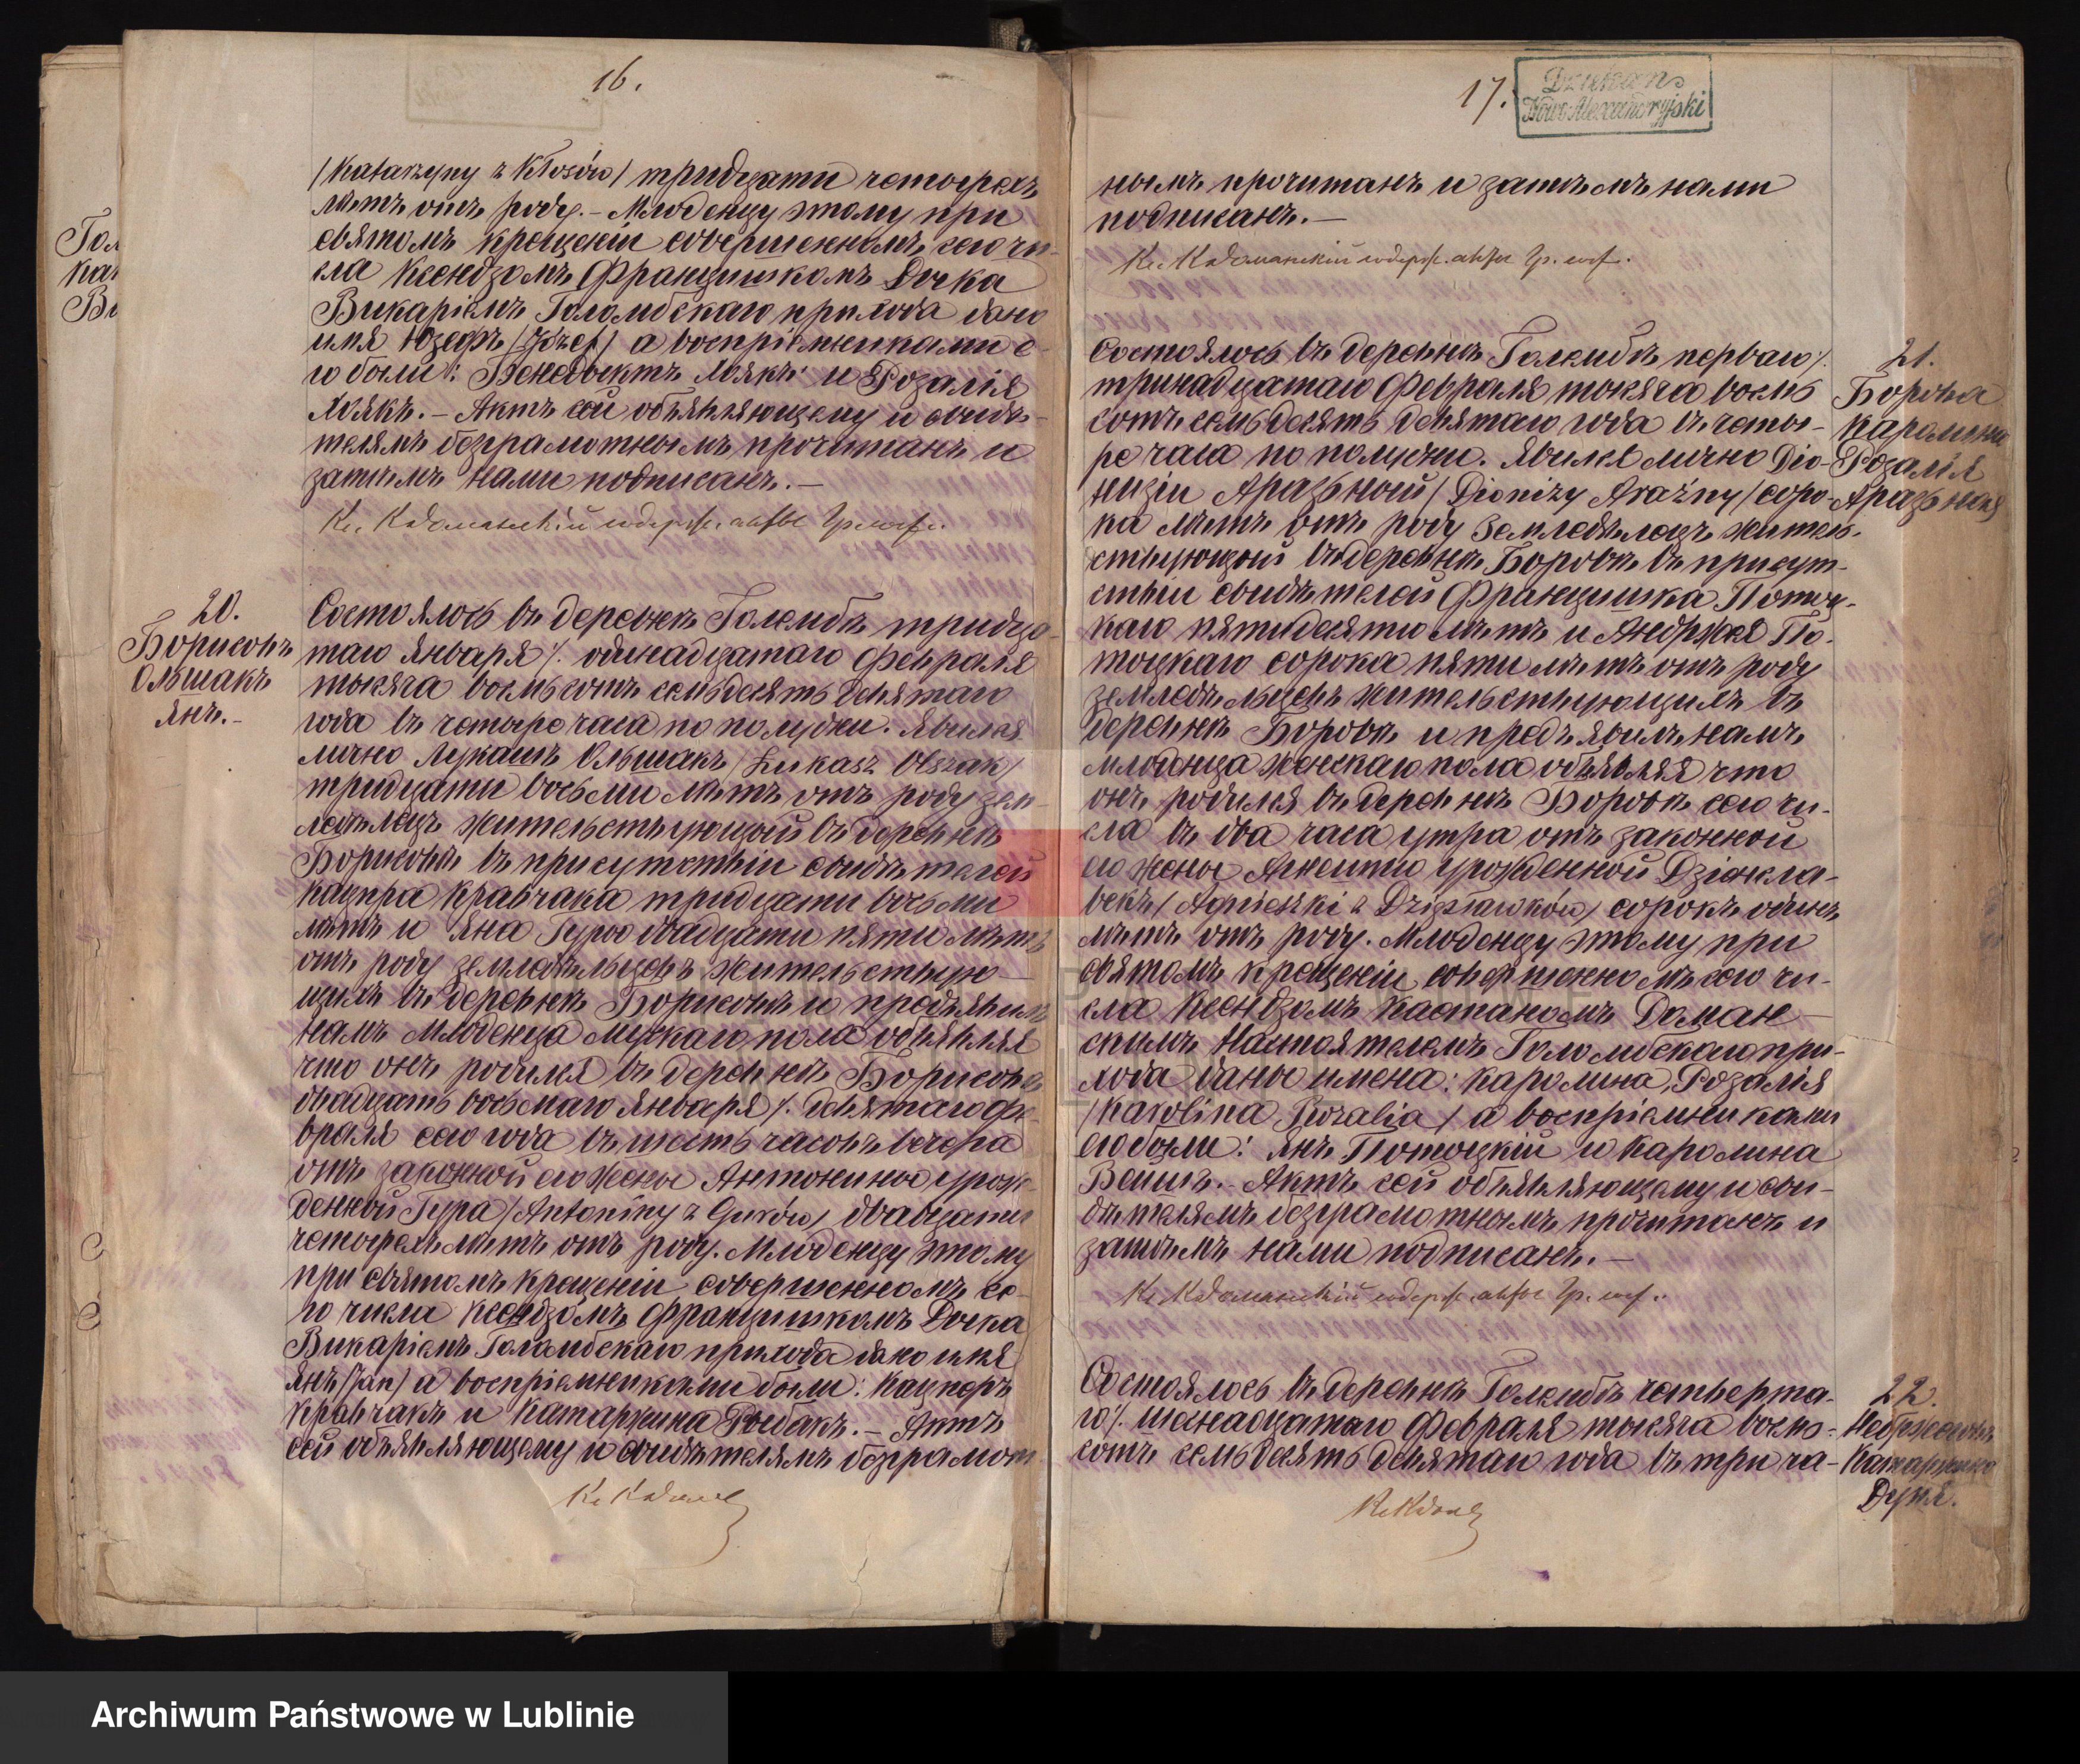 16.
(Katarzyny z Kłosów) тридцати четырехъ
лѣтъ отъ роду. – Младенцу этому при
святомъ крещеніи совершенномъ сего чи-
сла Ксендзомъ Францишкомъ Дочка
Викаріемъ Голомбскаго прихода дано
имя Юзефъ (Józef) а воспріемниками е-
го были: Бенедыктъ и Розалія
Актъ сей объявляющему и свидѣ-
телямъ безграмотнымъ прочитанъ и
затѣмъ нами подписанъ. –
Кс. К Доманскій содерж. акты гр. сост.
20.
Борисовъ
Ольшакъ
Янъ. –
Состоялось въ деревнѣ Голембѣ тридца-
таго Января /. одинадцатаго Февраля
тысяча восемьсотъ семьдесятъ девятаго
года въ четыре часа по полудни. Явился
лично Лукашъ Ольшакъ (Łukasz Olszak)
тридцати восьми лѣтъ отъ роду зем-
ледѣлецъ жительствующій въ деревнѣ
Борисовѣ въ присутствіи свидѣтелей
Кацпра Кравчака тридцати восьми
лѣтъ и Яна Гуры двадцати пяти лѣтъ
отъ роду земледѣльцевъ жительствую-
щихъ въ деревнѣ Борисовѣ и предъявилъ
намъ Младенца мужскаго пола объявляя
что онъ родился въ деревнѣ Борисовѣ
двадцать восьмаго Января /. девятаго Фе-
враля сего года въ шесть часовъ вечера
отъ законной его жены Антонины урож-
денной Гура (Antoniny z Gurów) двадцати
четырехъ лѣтъ отъ роду. Младенцу этому
при святомъ крещеніи совершенномъ се-
го числа Ксендзомъ Францишкомъ Дочка
Викаріемъ Голомбскаго прихода дано имя
Янъ (Jan) а воспріемниками были: Кацперъ
Кравчакъ и Катаржина Рыбакъ. – Актъ
сей объявляющему и свидѣтелямъ безграмот-
17.
Dziekan
Nowo-Alexandryjski
нымъ прочитанъ и затѣмъ нами
подписанъ. –
Кс. К Доманскій содерж. акты гр. сост.
21.
Борова
Каролина
Розалія
Аразьная
Состоялось въ деревнѣ Голембѣ перваго /.
тринадцатаго Февраля тысяча восемь
сотъ семьдесятъ девятаго года въ четы-
ре часа по полудни. Явился лично Діо-
низій Аразьный (Dionizy Araźny) соро-
ка лѣтъ отъ роду земледѣлецъ житель-
ствующій въ деревнѣ Боровѣ въ присут-
ствіи свидѣтелей Францишка Потоц-
каго пятидесяти лѣтъ и Андржея По-
тоцкаго сорока пяти лѣтъ отъ роду
земледѣльцевъ жительствующихъ въ
деревнѣ Боровѣ и предъявилъ намъ
младенца женскаго пола объявляя что
онъ родился въ деревнѣ Боровѣ сего чи-
сла въ два часа утра отъ законной
его жены Агнешки урожденной Дзіенгла-
векъ (Agnieszki z Dzięgławków) сорокъ одинъ
лѣтъ отъ роду. Младенцу этому при
святомъ крещеніи совершенномъ сего чи-
сла Ксендзомъ Каетаномъ Доман-
скимъ Настоятелемъ Голомбскаго при-
хода даны имена: Каролина, Розалія
(Karolina Rozalia) а воспріемниками
его были: Янъ Потоцкій и Каролина
Актъ сей объявляющему и сви-
дѣтелямъ безграмотнымъ прочитанъ и
затѣмъ нами подписанъ. –
Кс. К Доманскій содерж. акты гр. сост.
22.
Катаржина
Состоялось въ деревнѣ Голембѣ четверта-
го /. шестнадцатаго Февраля тысяча восемь-
сотъ семьдесятъ девятаго года въ три ча-
Archiwum Państwowe w Lublinie